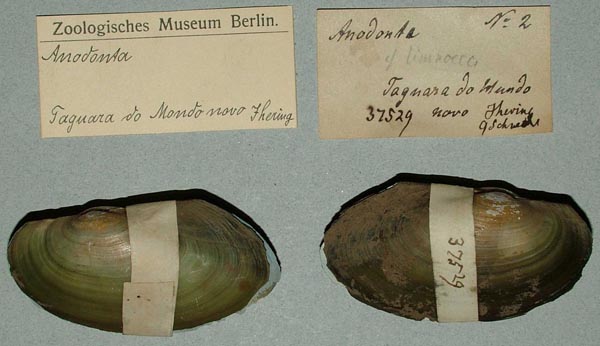 Zoologisches Museum Berlin.
Anodonta
Taguara do Mondo novo Jhering
Anodonta № 2
Taguara do Mundo
37529 novo Jhering
37529